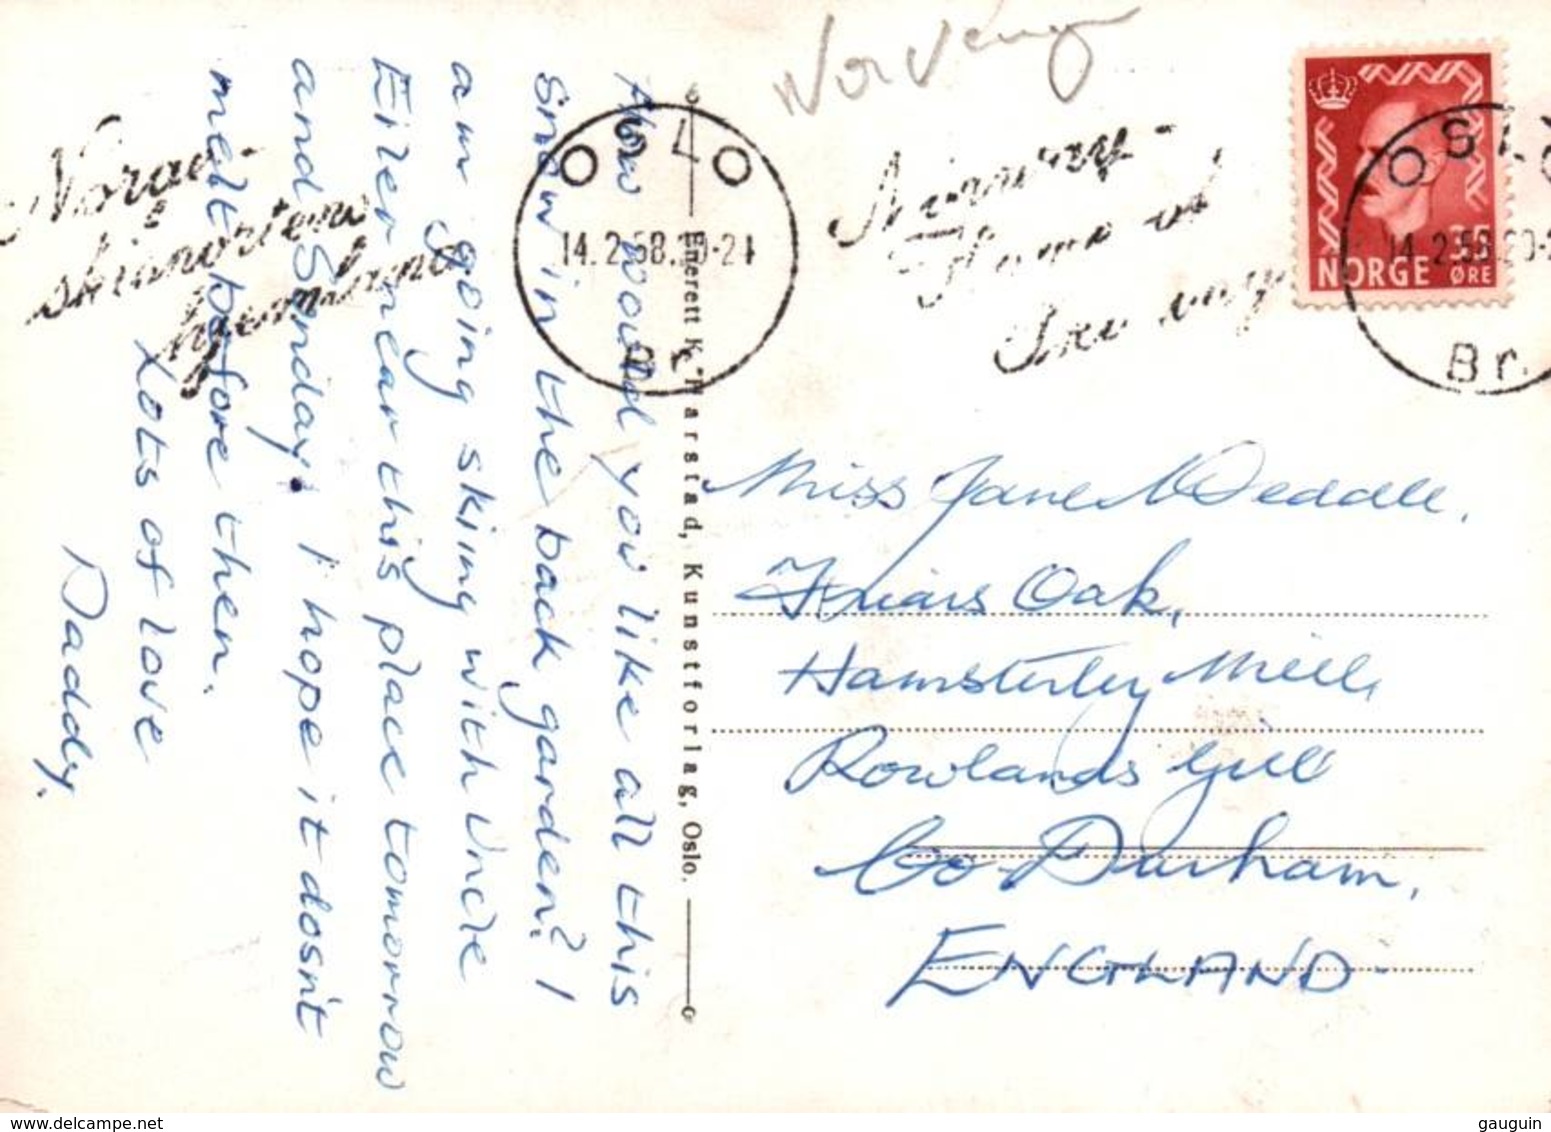 Norveng
OSLO
14.2.58.20-21
Br.
Norge -
skisportens
hjemland
Norway -
Home of
Skiing
NORGE
35
ØRE
OSLO
14.2.58.20-2
Br.
How would you like all this
snow in the back garden? I
am going skiing with Uncle
Eiler near this place tomorrow
and Sunday. I hope it dosn't
melt before then.
Lots of love
Daddy.
Enerett K. Harstad, Kunstforlag, Oslo.
Miss Jane Weddell.
Friars Oak,
Hamsterley Mill,
Rowlands Gill
Co Durham,
ENGLAND.
gauguin